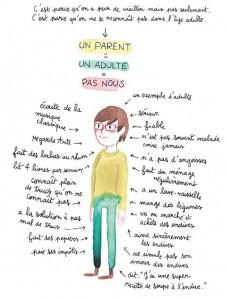 C'est parce qu'on a peur de vieillir mais pas seulement.
C'est parce qu'on ne se reconnaît pas dans l'âge adulte.
UN PARENT
=
UN ADULTE
=
PAS NOUS
un exemple d'adulte
écoute de la
musique
classique
regarde Arte
fait des babas au rhum
lit 4 livres par semaine
connaît plein
de trucs qu'on ne
connaît pas
a la solution à pas
mal de trucs
fait ses papiers
paie ses impôts
sérieux
fiable
n'est pas souvent malade
voire jamais
n'a pas d'angoisses
fait du ménage
régulièrement
a un lave-vaisselle
mange des légumes
va au marché et
achète des endives
aime sincèrement
les endives
ne cache pas son
amour des endives
dit: "J'ai une super
recette de soupe à l'endive."